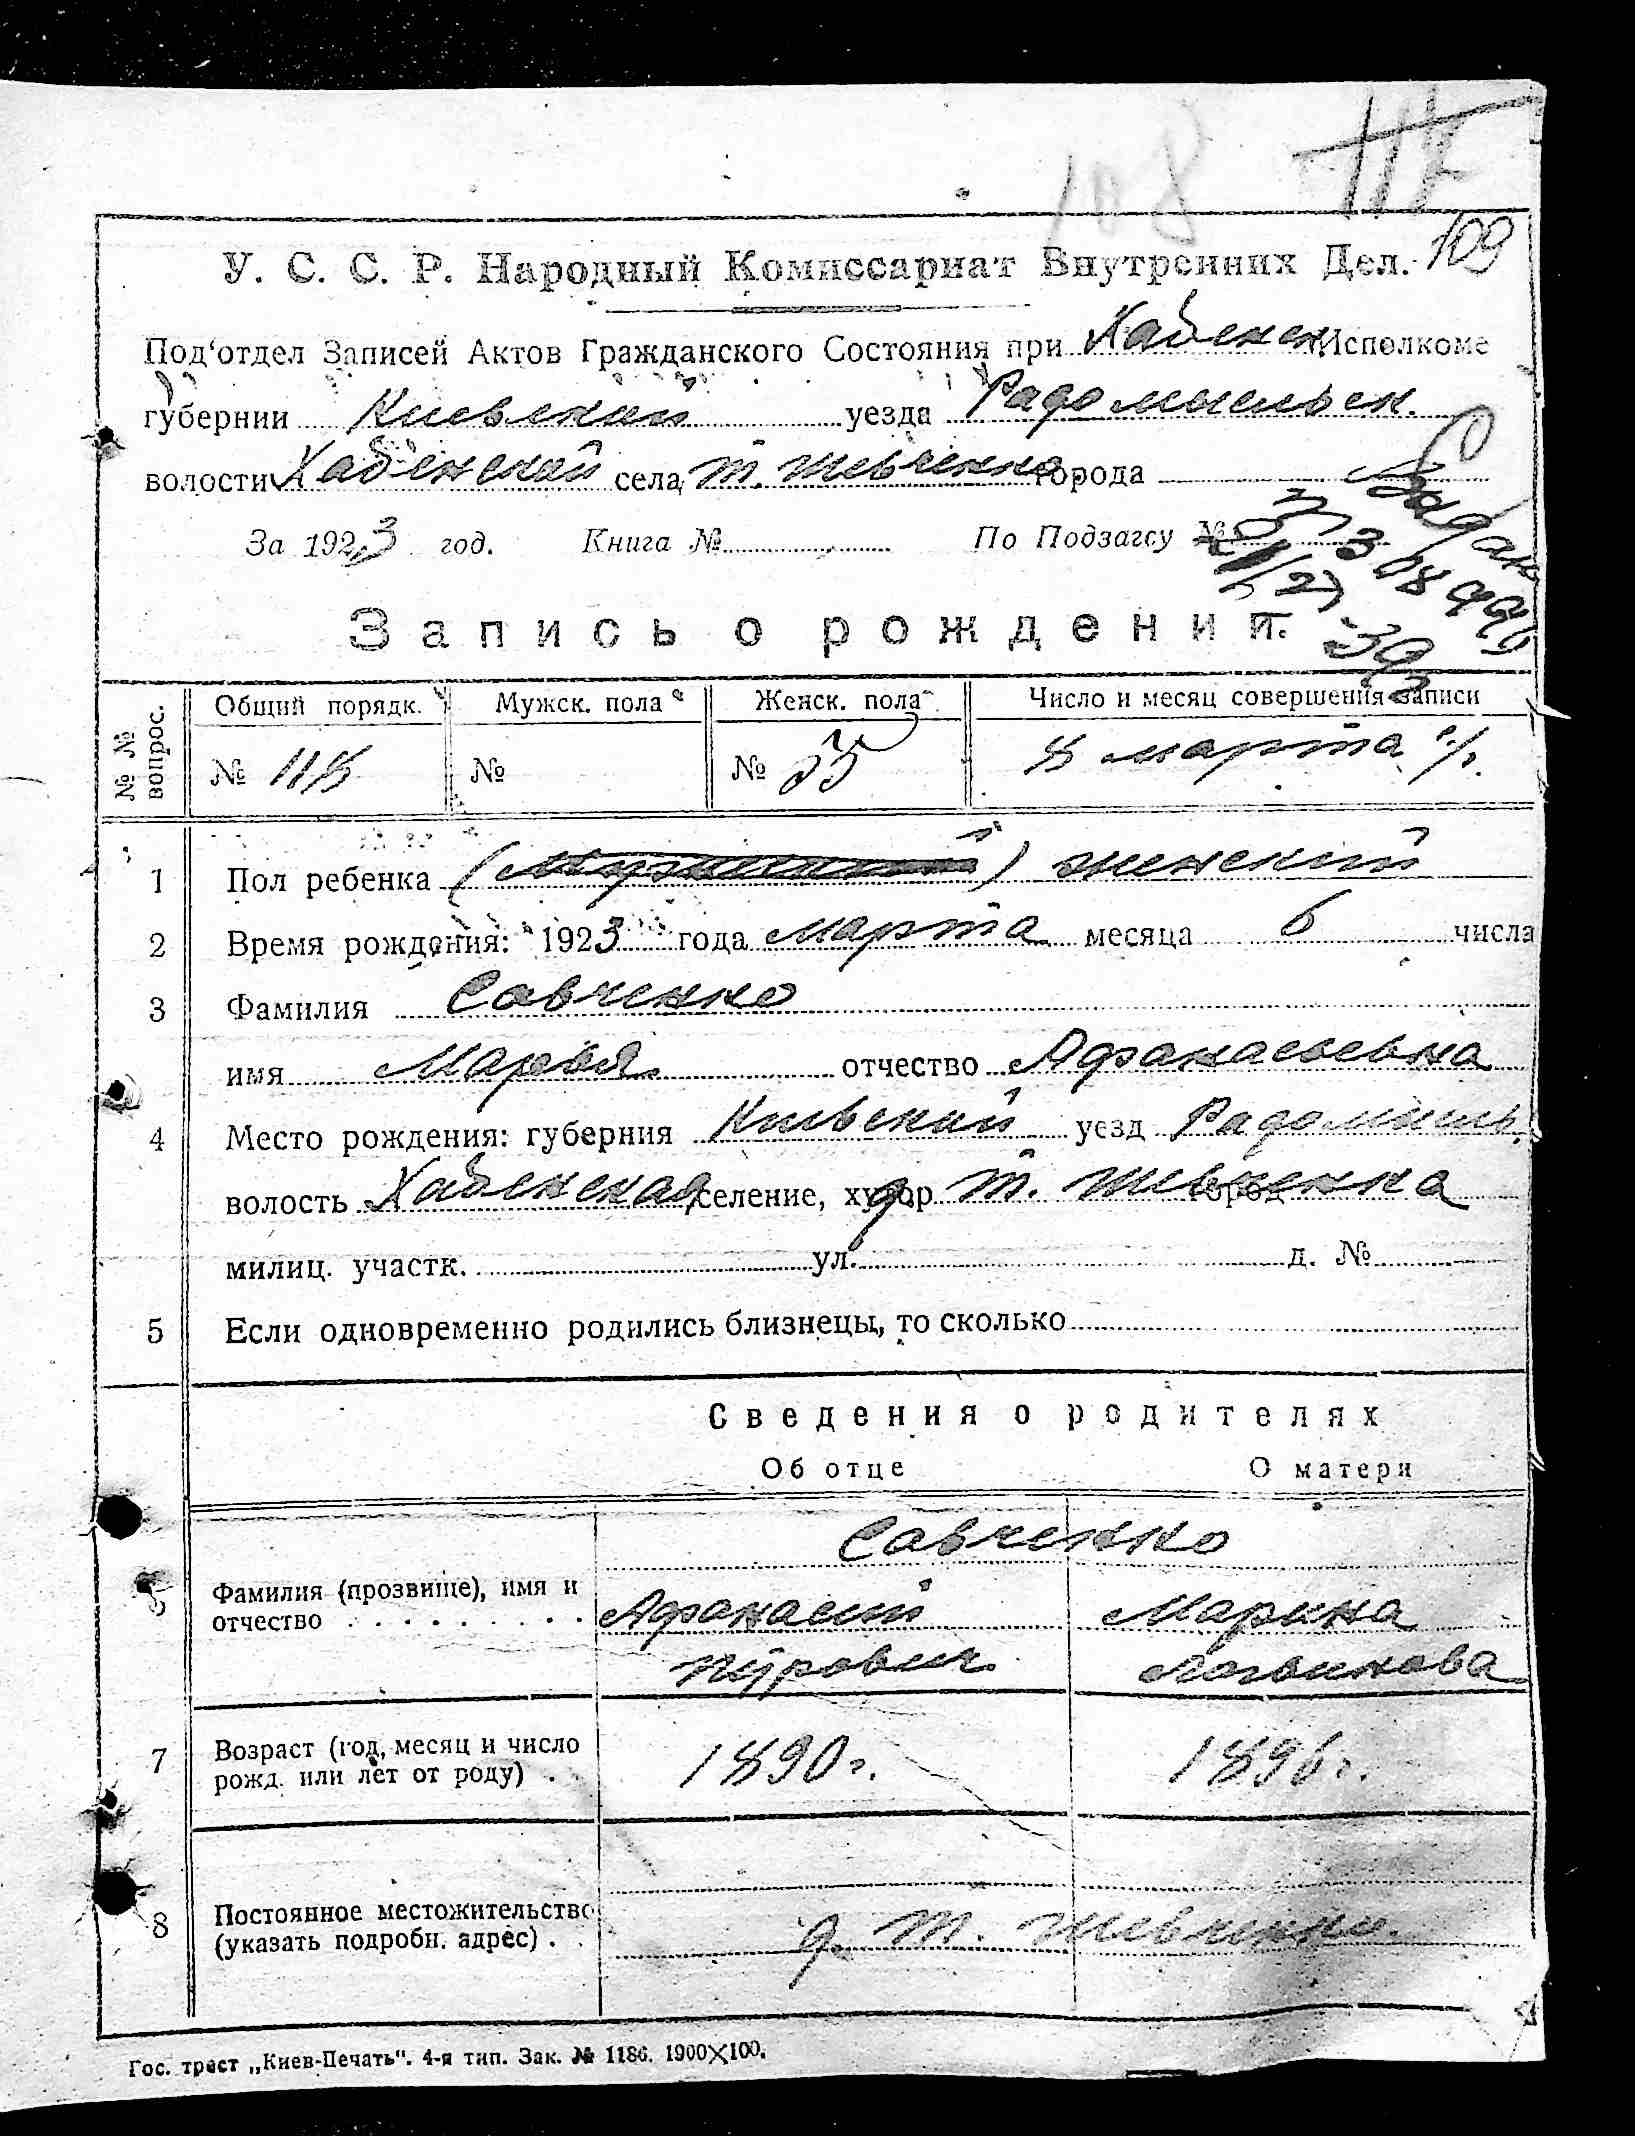 108 III
109
У. С. С. Р. Народный Комиссариат Внутренних Дел.
Под‘отдел Записей Актов Гражданского Состояния при Хабенск. Исполкоме
губернии Киевский уезда Радомысльск.
волости Хабенской села Т. Шевченко города
За 1923 год. Книга № По Подзагсу №
Запись о рождении.
№ № вопрос. Общий порядк. Мужск. пола Женск. пола Число и месяц совершения записи
№ 118 № № 55 8 марта
1 Пол ребенка (Мужеский) женский
2 Время рождения: 1923 года марта месяца 6 числа
3 Фамилия Савченко
имя Марья отчество Афанасьевна
4 Место рождения: губерния Киевский уезд Радомысль.
волость Хабенская селение, хутор д. Т. Шевченка город
милиц. участк. ул. д. №
5 Если одновременно родились близнецы, то сколько
Сведения о родителях
Об отце О матери
Савченко
6 Фамилия (прозвище), имя и
отчество Афанасий Марина
Логвинова
7 Возраст (год, месяц и число
рожд. или лет от роду) 1890 г. 1896 г.
8 Постоянное местожительство
(указать подробн. адрес) д. Т. Шевченко.
Гос. трест „Киев-Печать“. 4-я тип. Зак. № 1186. 1900×100.